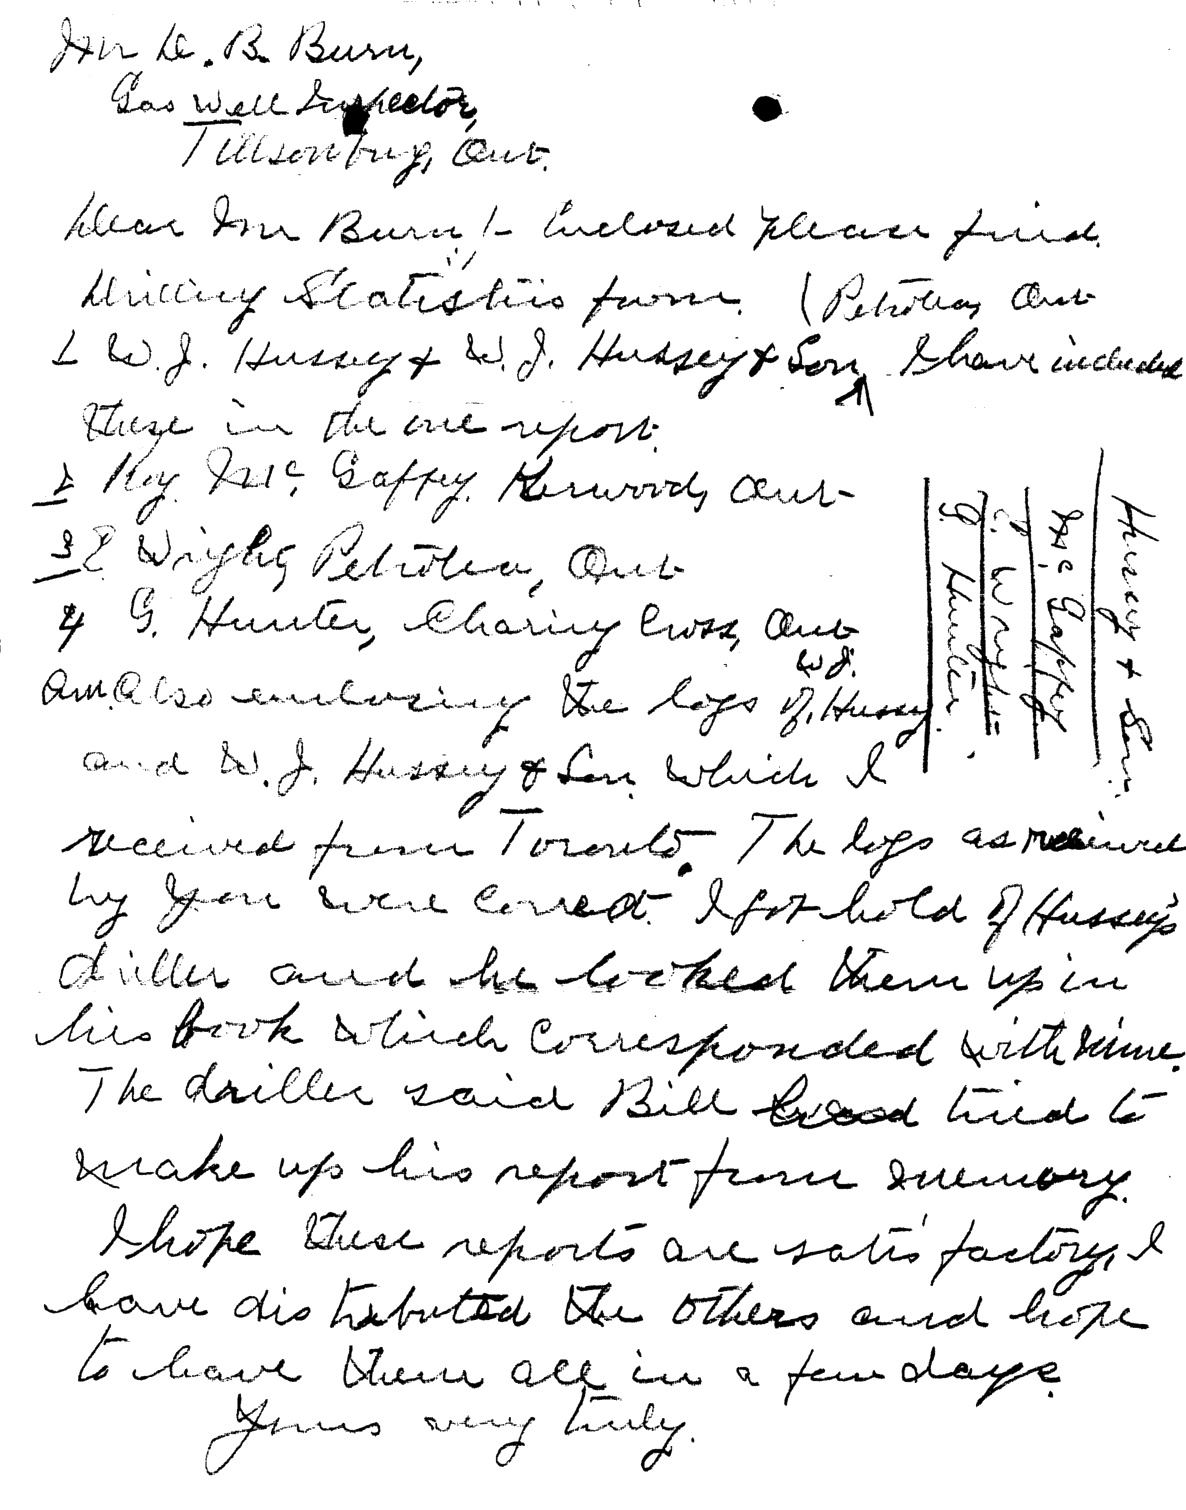 Mr D. B. Burn,
Gas Well Inspector,
Tillsonburg, Ont.
Dear Mr Burn!- Enclosed please find
Drilling Statistics form. (Petrolea, Ont
1 W. J. Hussey & W. J. Hussey & Son, I have included
these in the one report.
2 Roy Mc. Gaffey. Kerwood, Ont
3 E Wright, Petrolea, Ont
4 G. Hunter, Charing Cross, Ont
W J.
Am also enclosing the logs of, Hussey.
and W. J. Hussey & Son. which I
received from Toronto. The logs as received
by you were correct. I got hold of Hussey's
driller and he looked them up in
his book which corresponded with mine.
The driller said Bill tried to
make up his report from memory.
I hope these reports are satisfactory, I
have distributed the others and hope
to have them all in a few days.
Yours very truly.
Hussey & Son.
Mc Gaffey
E. Wright
G. Hunter.